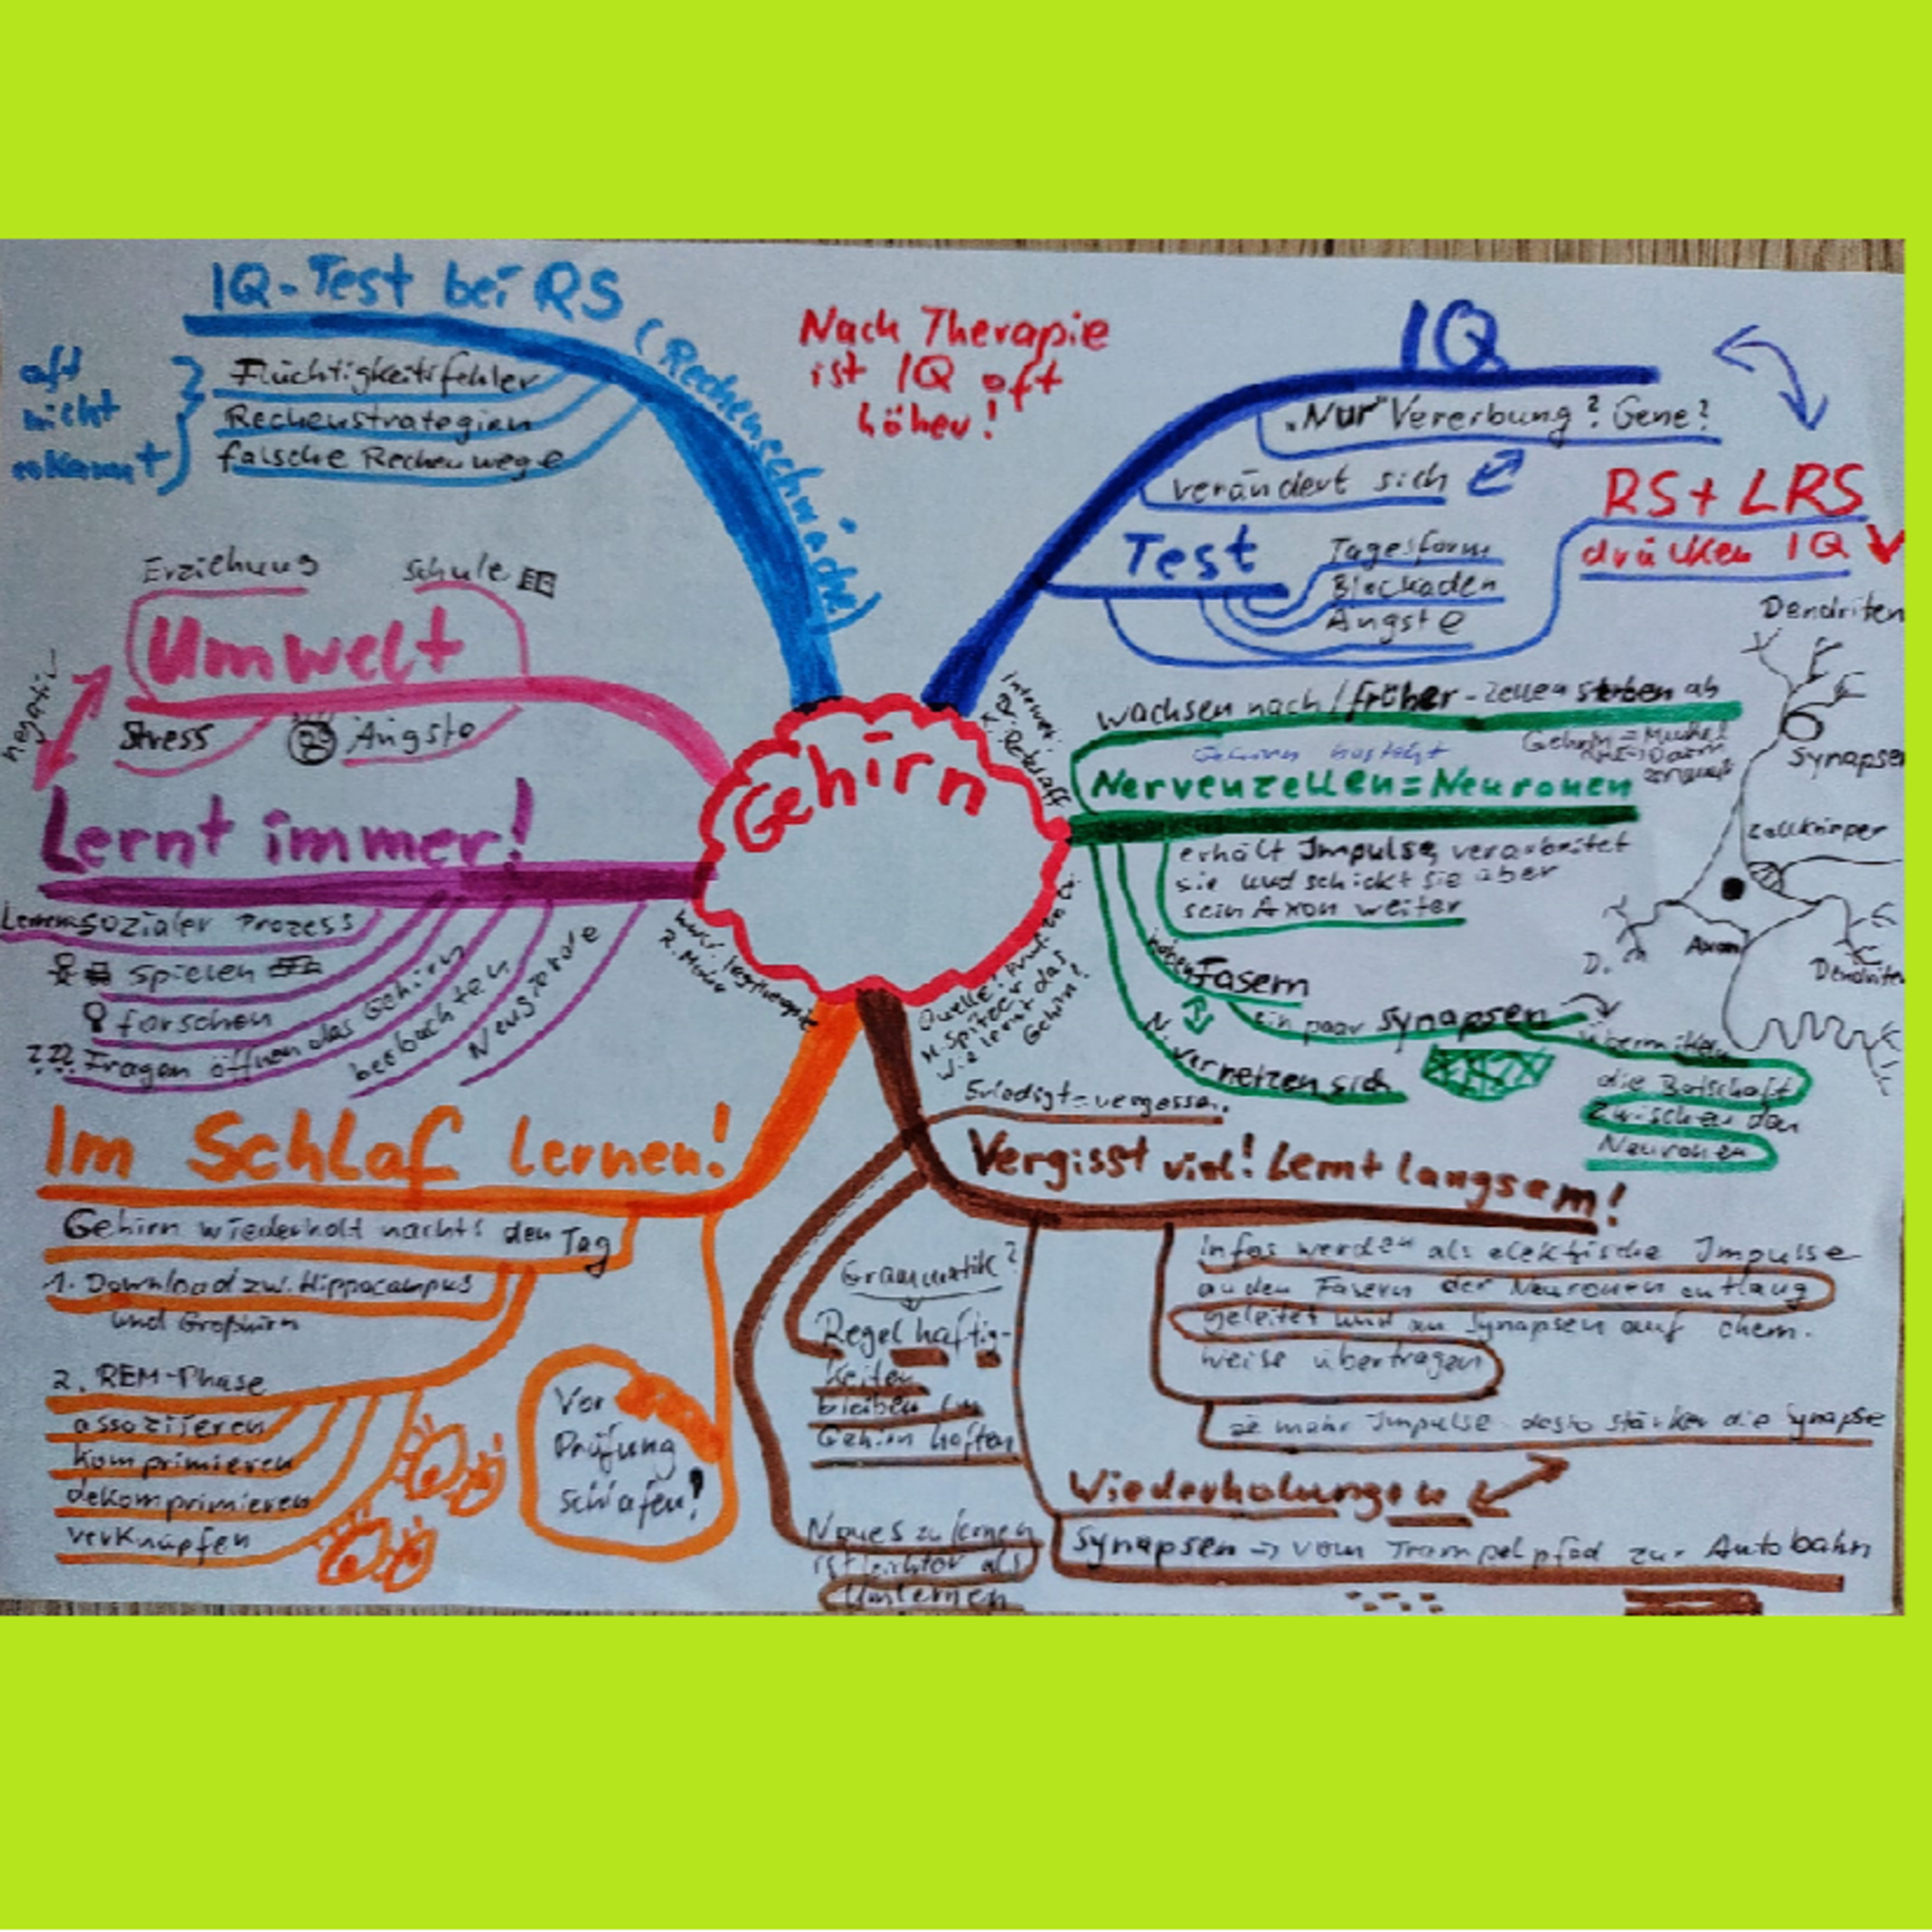 IQ-Test bei RS
(Rechenschwäche)
oft
nicht
erkannt
Flüchtigkeitsfehler
Rechenstrategien
falsche Rechenwege
Nach Therapie
ist IQ oft
höher!
IQ
„Nur" Vererbung? Gene?
verändert sich
Test
Tagesform
Blockaden
Ängste
RS + LRS
drücken IQ
Erziehung
Schule
Umwelt
Stress
Ängste
Lernt immer!
Lernen sozialer Prozess
spielen
forschen
??? Fragen öffnen das Gehirn
beobachten
Neugierde
Gehirn
wachsen nach / früher - Zellen sterben ab
Nervenzellen = Neuronen
erhält Impulse, verarbeitet
sie und schickt sie über
sein Axon weiter
haben Fasern
ein paar Synapsen
übermitteln
die Botschaft
zwischen den
Neuronen
N. vernetzen sich
Dendriten
Synapsen
Zellkörper
Axon
D.
Dendriten
Quelle:
M. Spitzer
Wie lernt das
Gehirn?
Im Schlaf lernen!
Gehirn wiederholt nachts den Tag
1. Download zw. Hippocampus
und Großhirn
2. REM-Phase
assoziieren
komprimieren
dekomprimieren
verknüpfen
Vor
Prüfung
schlafen!
Erledigt = vergessen.
Vergisst viel! Lernt langsam!
Grammatik?
Regelhaftig-
keiten
bleiben im
Gehirn haften
Neues zu lernen
ist leichter als
Umlernen
Infos werden als elektrische Impulse
an den Fasern der Neuronen entlang
geleitet und an Synapsen auf chem.
Weise übertragen
Je mehr Impulse desto stärker die Synapse
Wiederholungen
Synapsen → vom Trampelpfad zur Autobahn